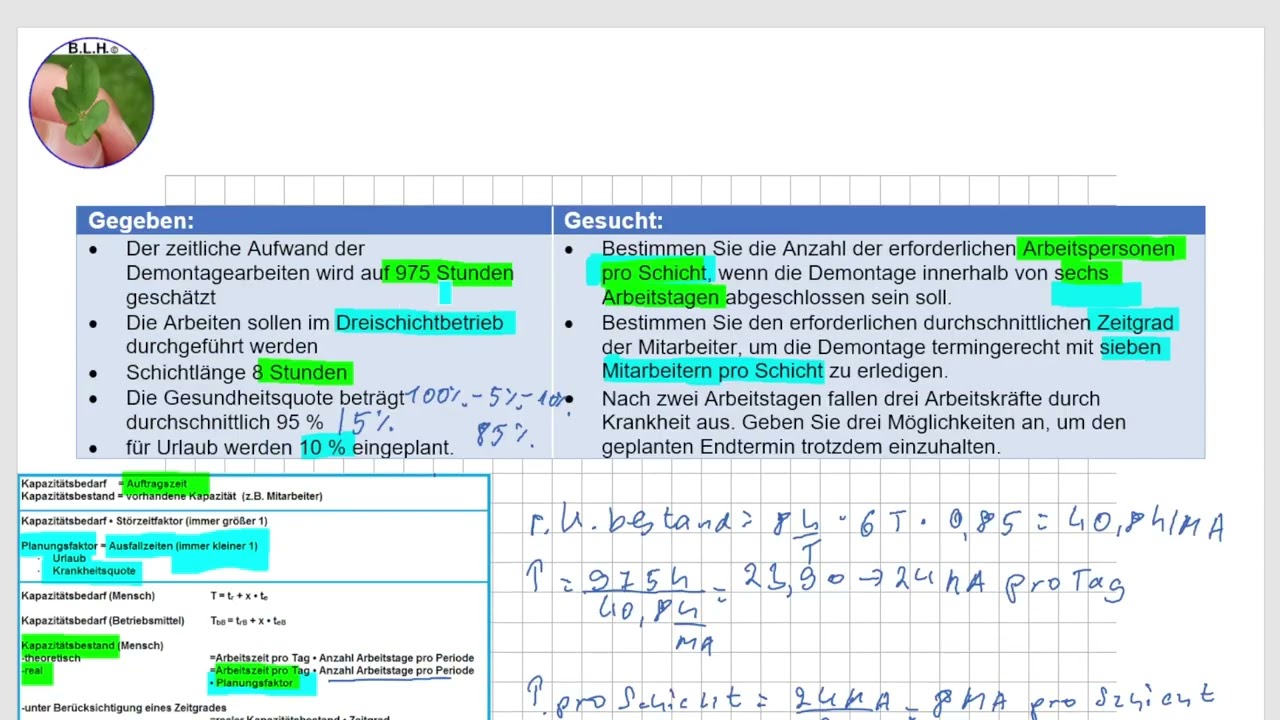 B.L.H.©
Gegeben:
Der zeitliche Aufwand der
Demontagearbeiten wird auf 975 Stunden
geschätzt
Die Arbeiten sollen im Dreischichtbetrieb
durchgeführt werden
Schichtlänge 8 Stunden
Die Gesundheitsquote beträgt 100%-5%-10%
durchschnittlich 95 % /5%
85%
für Urlaub werden 10 % eingeplant.
Gesucht:
Bestimmen Sie die Anzahl der erforderlichen Arbeitspersonen
pro Schicht, wenn die Demontage innerhalb von sechs
Arbeitstagen abgeschlossen sein soll.
Bestimmen Sie den erforderlichen durchschnittlichen Zeitgrad
der Mitarbeiter, um die Demontage termingerecht mit sieben
Mitarbeitern pro Schicht zu erledigen.
Nach zwei Arbeitstagen fallen drei Arbeitskräfte durch
Krankheit aus. Geben Sie drei Möglichkeiten an, um den
geplanten Endtermin trotzdem einzuhalten.
Kapazitätsbedarf = Auftragszeit
Kapazitätsbestand = vorhandene Kapazität (z.B. Mitarbeiter)
Kapazitätsbedarf • Störzeitfaktor (immer größer 1)
Planungsfaktor = Ausfallzeiten (immer kleiner 1)
Urlaub
Krankheitsquote
Kapazitätsbedarf (Mensch) T = tr + x • te
Kapazitätsbedarf (Betriebsmittel) TbB = trB + x • teB
Kapazitätsbestand (Mensch)
-theoretisch =Arbeitszeit pro Tag • Anzahl Arbeitstage pro Periode
-real =Arbeitszeit pro Tag • Anzahl Arbeitstage pro Periode
• Planungsfaktor
-unter Berücksichtigung eines Zeitgrades
=realer Kapazitätsbestand • Zeitgrad
r.K.bestand = 8 h/T · 6 T · 0,85 = 40,8 h/MA
= 975 h / 40,8 h/MA = 23,90 → 24 MA pro Tag
pro Schicht = 24 MA = 8 MA pro Schicht